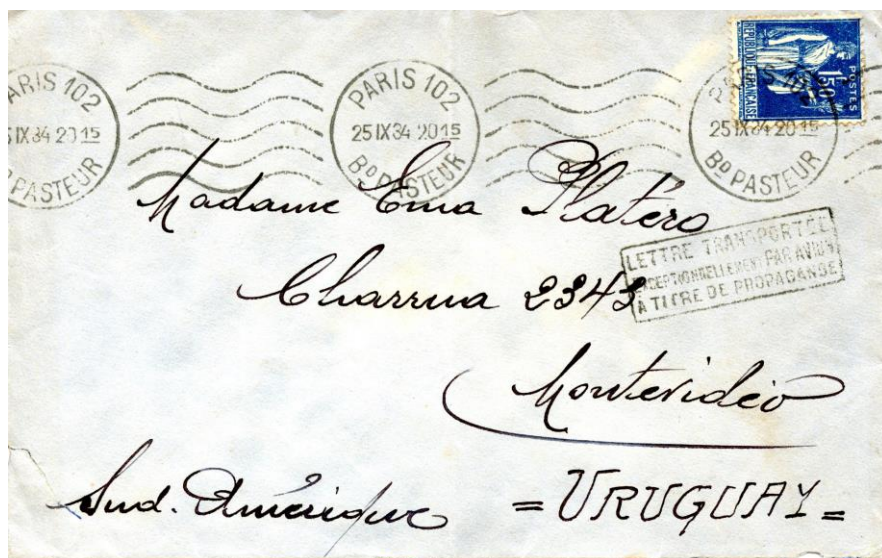 PARIS 102
25 IX 34 20 15
Bᴰ PASTEUR
PARIS 102
25 IX 34 20 15
Bᴰ PASTEUR
PARIS 102
25 IX 34 20 15
Bᴰ PASTEUR
POSTES
1F50
REPUBLIQUE FRANCAISE
Madame Ema Platero
LETTRE TRANSPORTÉE
EXCEPTIONNELLEMENT PAR AVION
A TITRE DE PROPAGANDE
Charrua 2343
Montevidéo
Sud. Amérique = URUGUAY =